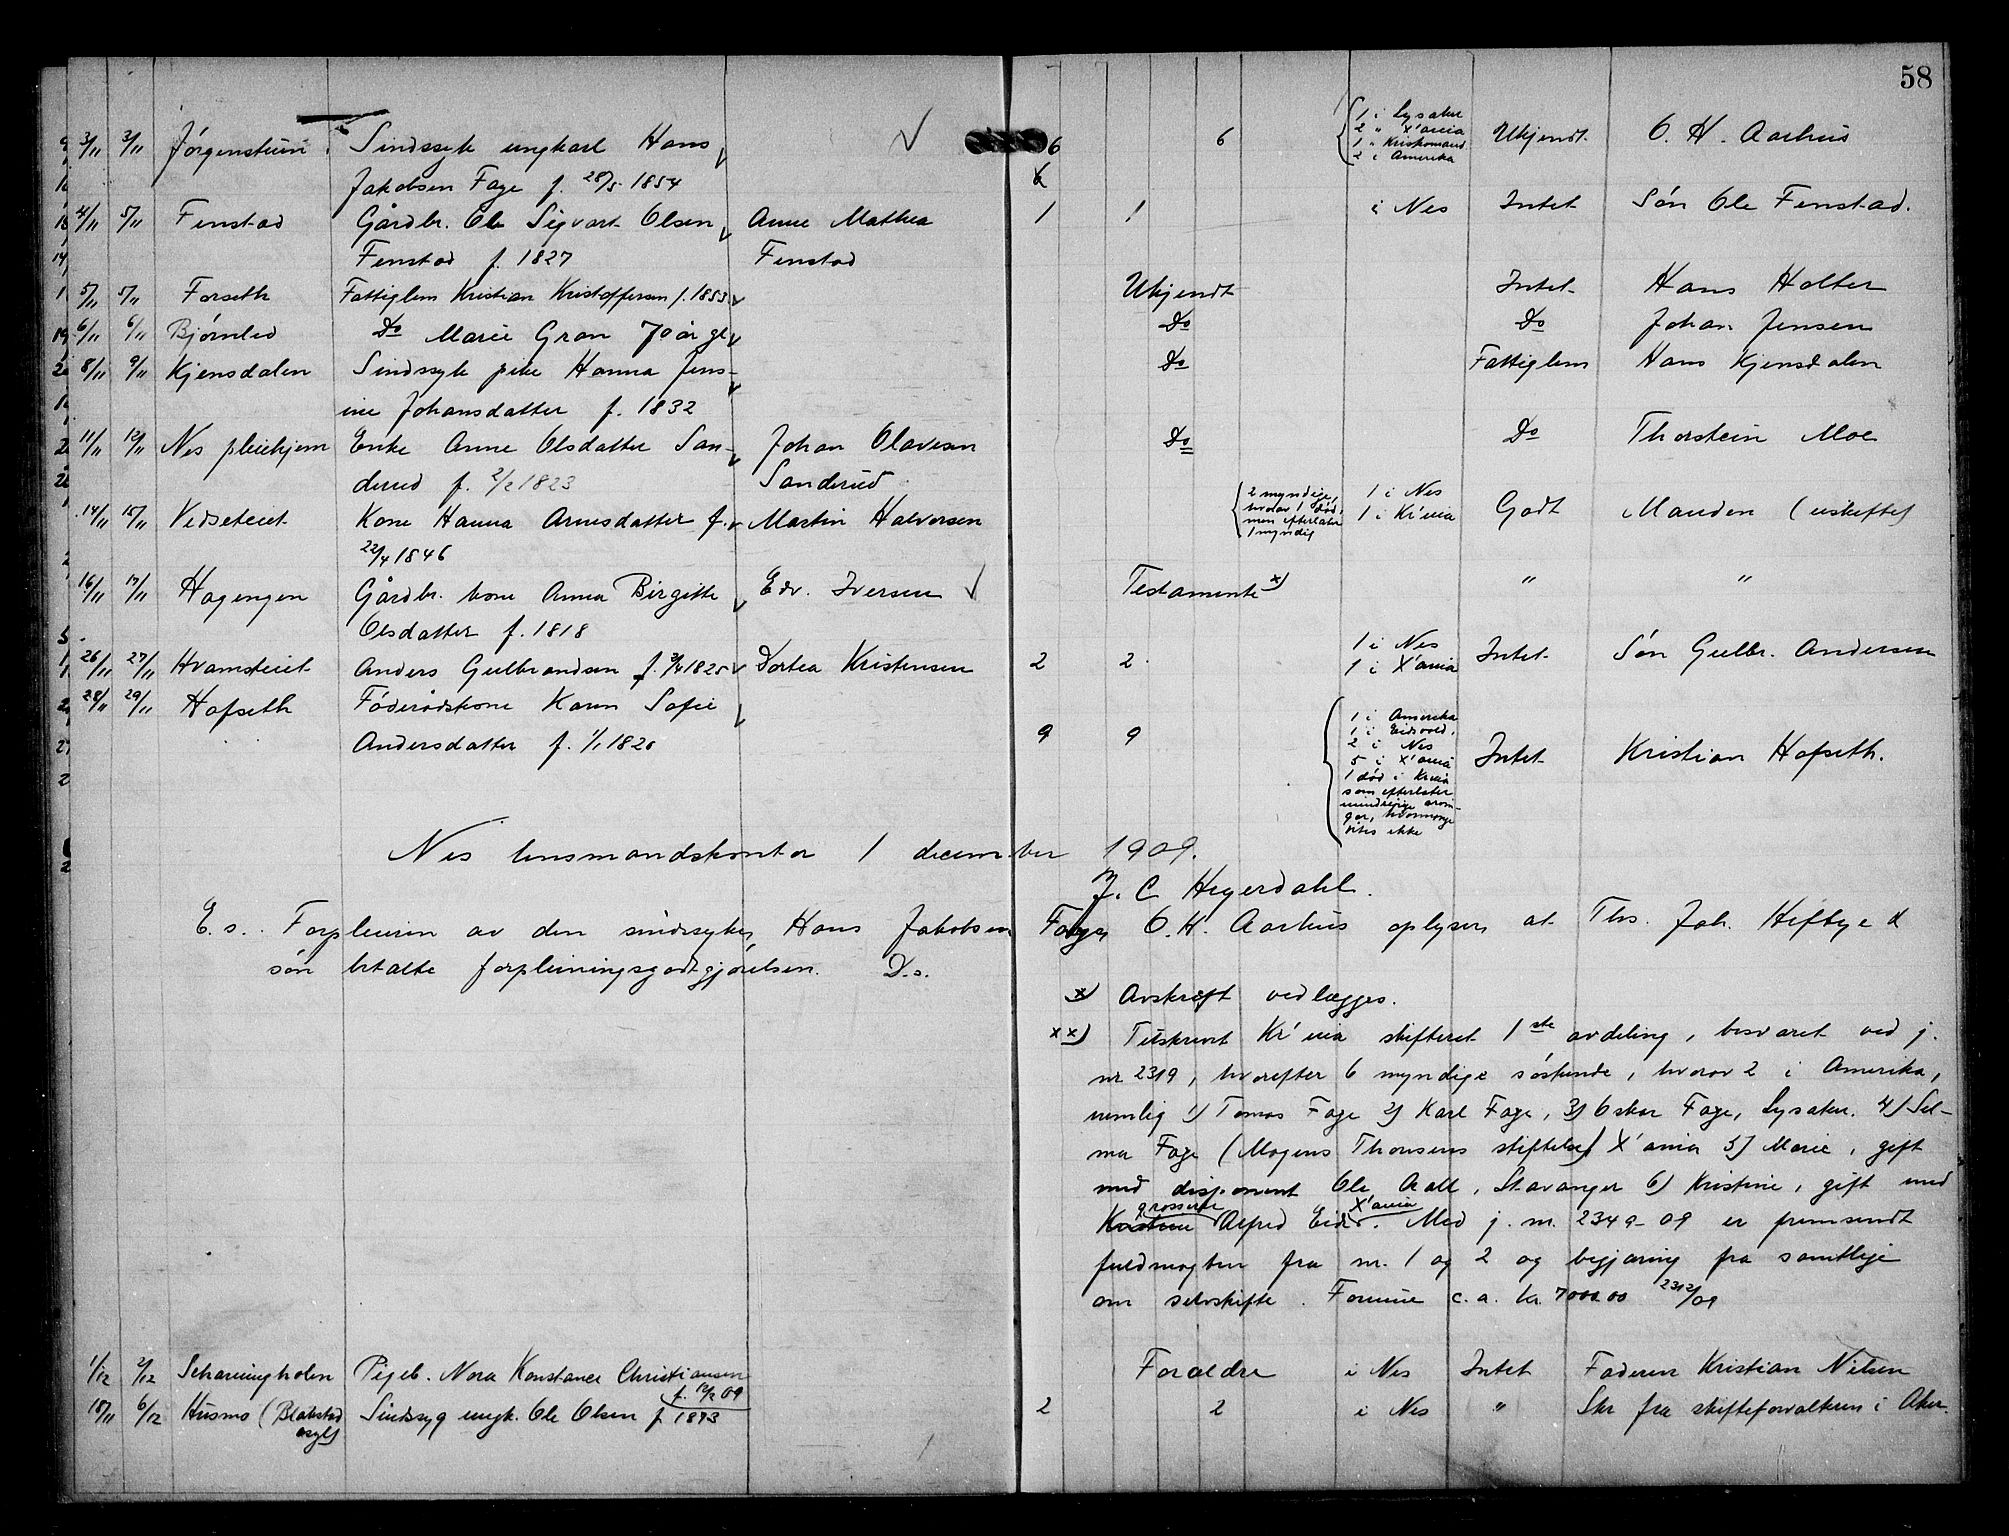 58
3/11 3/11 Jørgensteien Sindssyk ungkarl Hans 6 6 1 i Lysaker Ukjendt O. H. Aarhus
2 " X'ania
1 "
2 i Amerika
Jakobsen Fage f. 28/5 1854
4/11 5/11 Fenstad Gårdbr. Ole Sigvart Olsen Anne Mathea 1 1 i Nes Intet Søn Ole Fenstad.
Fenstad f. 1827 Fenstad
5/11 5/11 Forseth Fattiglem Kristian Kristoffersen f. 1853 Ukjendt Intet Hans Holter
6/11 6/11 Bjørnled Do Marie Gran 70 år gl Do Do Johan Jensen
8/11 9/11 Kjensdalen Sindssyk pike Hanna Jens- Do Fattiglem Hans Kjensdalen
ine Johansdatter f. 1832
11/11 12/11 Nes pleiehjem Enke Anne Olsdatter San- Johan Olavesen Do Do Thorstein Moe
derud f. 2/2 1823 Sanderud
14/11 15/11 Vedseteiet Kone Hanna Arnesdatter f. Martin Halvorsen 2 myndige, 1 i Nes Godt Manden (uskiftet)
hvorav 1 død, 1 i Kr'nia
men efterlater
1 myndig
22/4 1846
16/11 17/11 Hagengen Gårdbr. kone Anna Birgitte Edv. Iversen Testamente x) " "
Olsdatter f. 1818
26/11 27/11 Hvamsteiet Anders Gulbrandsen f. 3/4 1825 Dortea Kristensen 2 2 1 i Nes Intet Søn Gulbr. Andersen
1 i X'ania
28/11 29/11 Hofseth Føderådskone Karen Sofie
Andersdatter f. 1/1 1826 9 9 1 i Amerika Intet Kristian Hofseth.
1 i Eidsvold,
2 i Nes
5 i X'ania
1 død i Kr'nia
som efterlater
mindreårige arvin-
ger, hvormange
vites ikke
Nes lensmandskontor 1 december 1909.
J. C. Hegerdahl.
E. s. Forpleieren av den sindssyke, Hans Jakobsen Fage, O. H. Aarhus oplyser, at Ths. Joh. Heftye &
søn betalte forpleiningsgodtgjørelsen. D.s.
x) Avskrift vedlægges.
xx) Tilskrevet Kr'nia skifteret 1ste avdeling, besvaret ved j.
nr 2319, hvorefter 6 myndige søskende, hvorav 2 i Amerika,
nemlig 1) Tomas Fage 2) Karl Fage, 3) Oskar Fage, Lysaker. 4) Sel-
ma Fage (Mogens Thorsens stiftelse) X'ania 5) Marie, gift
med disponent Ole Aall, Stavanger 6) Kristine, gift med
grosserer X'ania
Kristine Alfred Eid. Med j. nr. 2349-09 er fremsendt
fuldmagter fra nr. 1 og 2 og begjæring fra samtlige
om selvskifte. Formue c. a. kr. 7000.00 2312/09
1/12 2/12 Scharningholen Pigeb. Nora Konstance Christiansen Forældre i Nes Intet Faderen Kristian Nilsen
f. 12/2 09
15/11 6/12 Husmo (Blakstad Sindssyg ungk. Ole Olsen f 1873 2 2 i Nes " Skr fra skifteforvalteren i Aker.
asyl)